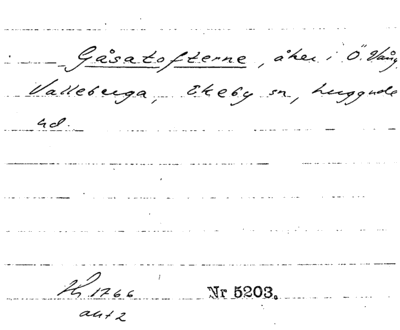 Gåsatofterne, åker i Ö. Vång,
Valleberga, Ekeby sn, Luggude
hd.
1766 Nr 5203.
akt 2